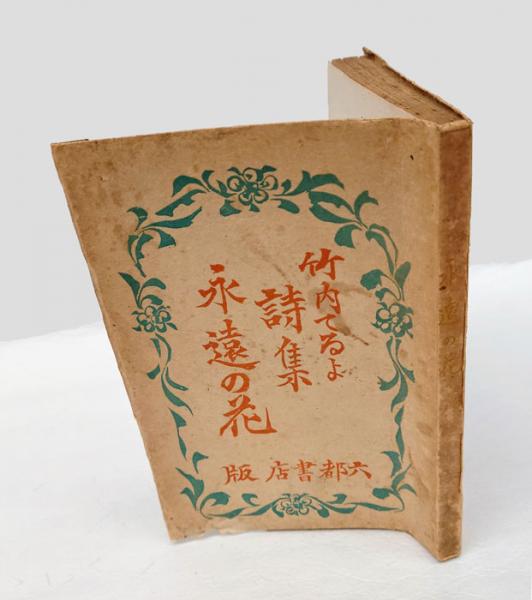 竹内てるよ
詩集
永遠の花
六都書店版
遠の花